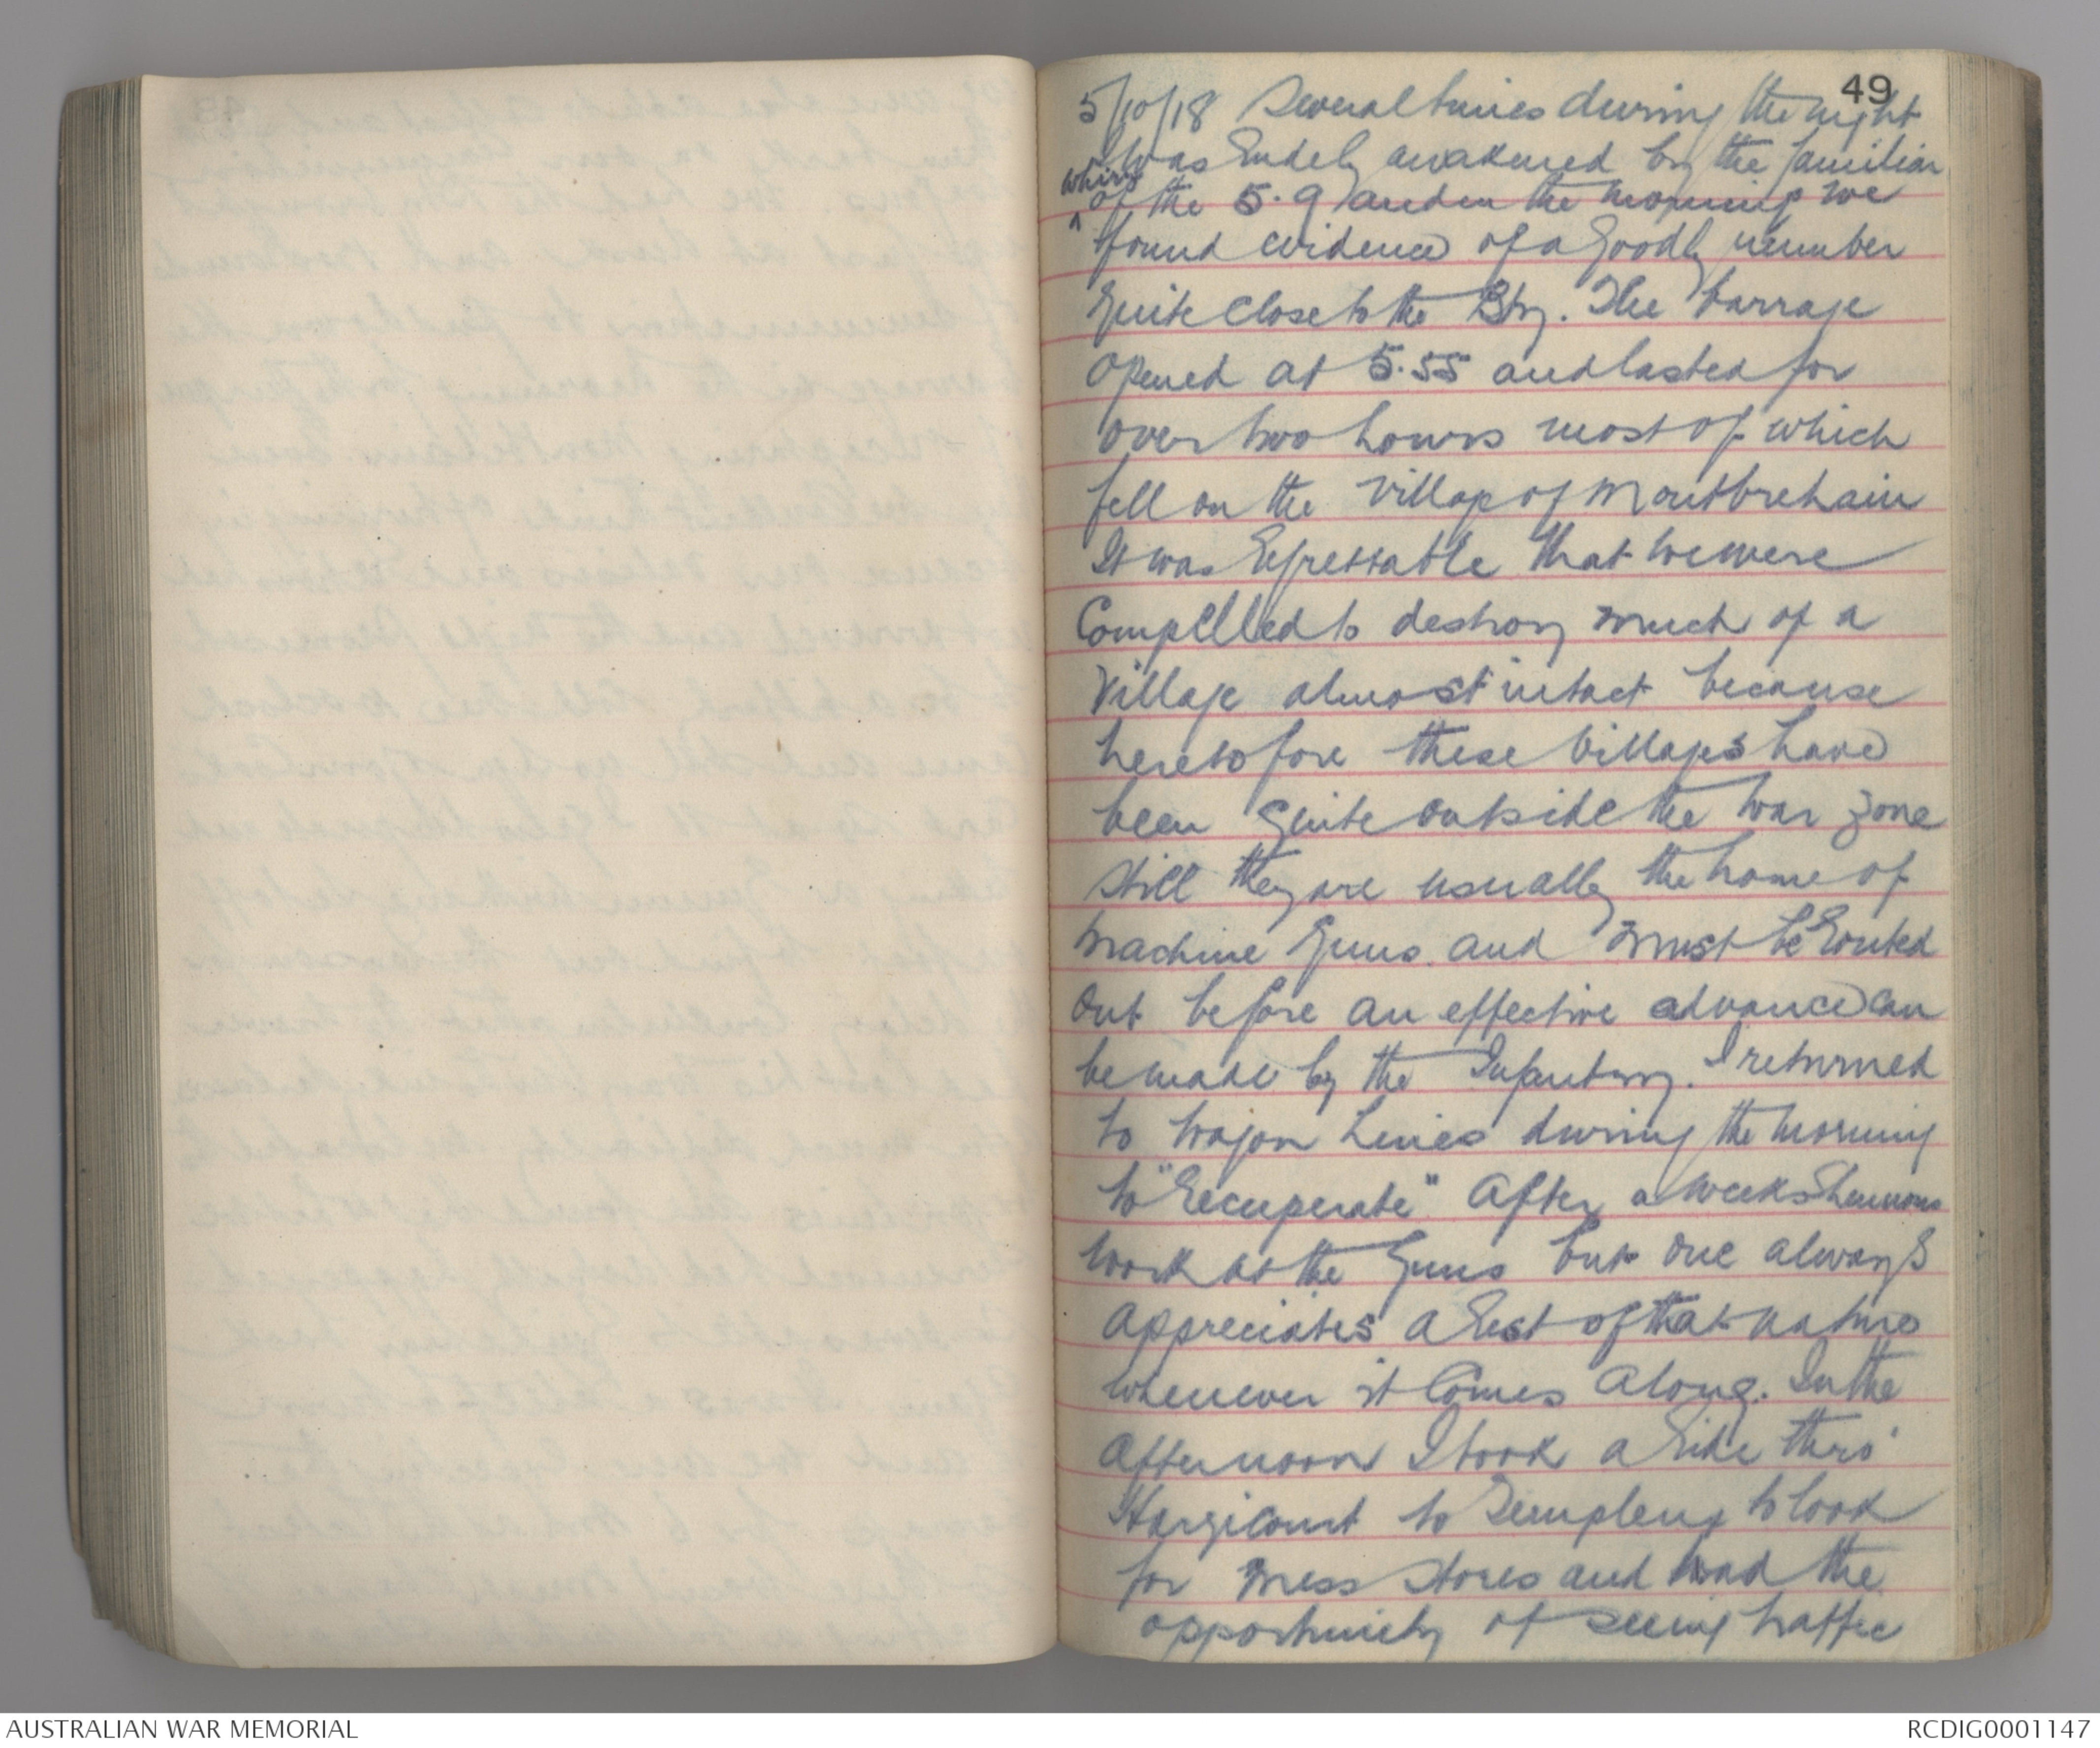 49
5/10/18 Several times during the night
I was rudely awakened by the familiar
whirr
of the 5.9 and in the morning we
found evidence of a goodly number
quite close to the Bty. The barrage
opened at 5.55 and lasted for
over two hours most of which
fell on the village of Montbrehain
It was regrettable that we were
Compelled to destroy much of a
Village almost intact because
heretofore these villages have
been quite outside the war zone
still they are usually the home of
Machine guns and must be routed
out before an effective advance can
be made by the Infantry. I returned
to wagon Lines during the morning
to "recuperate" After a weeks strenuous
work at the guns but one always
appreciates a rest of that nature
whenever it Comes Along. In the
afternoon I took a ride thro'
Hargicourt to Templeux to look
for mess stores and had the
opportunity of seeing traffic
AUSTRALIAN WAR MEMORIAL
RCDIG0001147